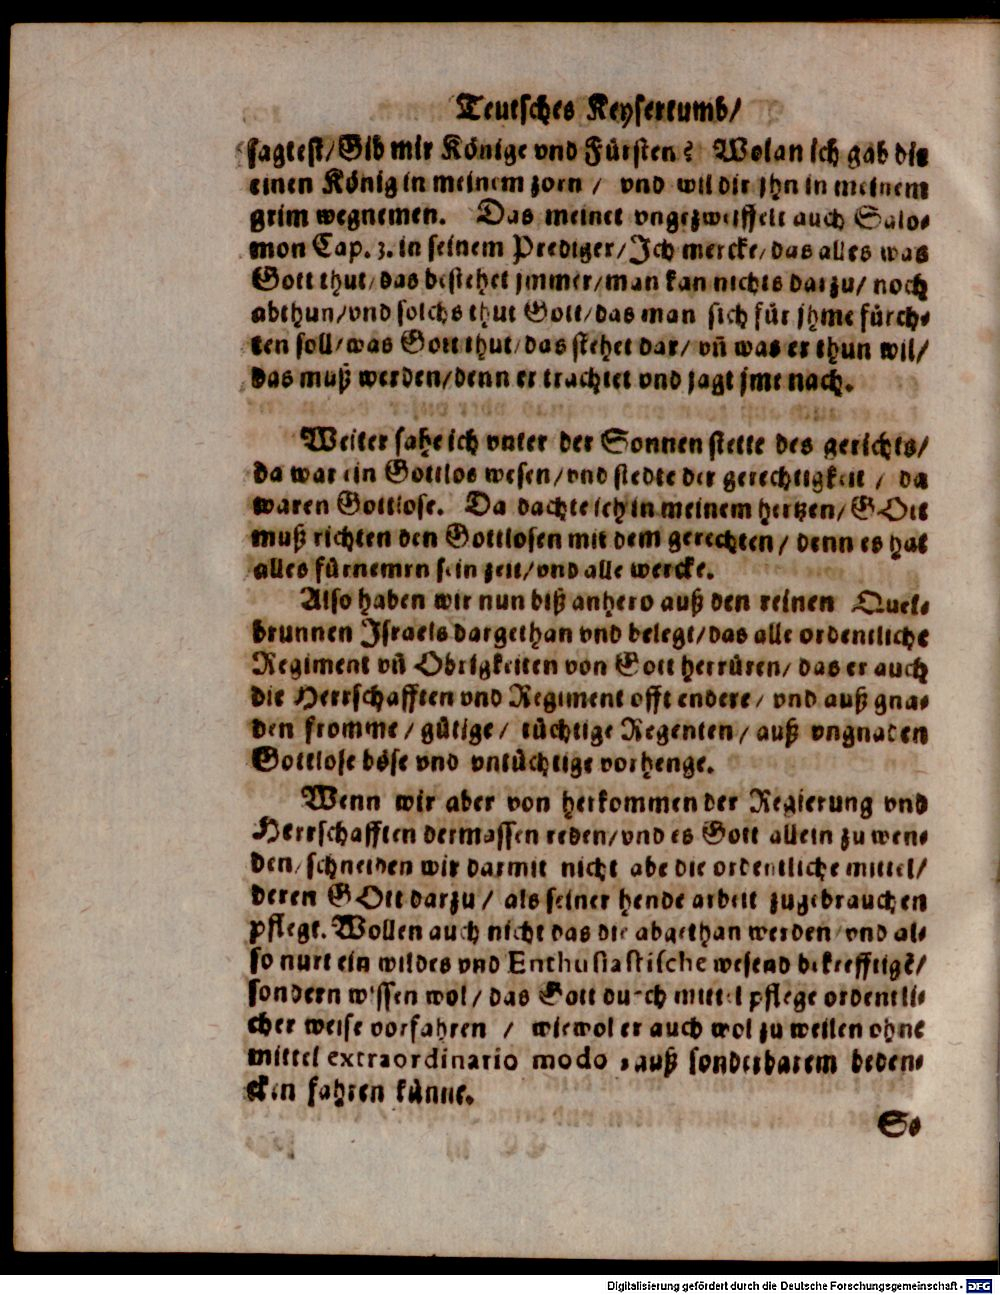 Teutsches Keysertumb/
sagtest/Gib mir Könige vnd Fürsten? Wolan ich gab dir
einen König in meinem zorn / vnd wil dir jhn in meinem
grim wegnemen. Das meinet vngezweiffelt auch Salo-
mon Cap. 3. in seinem Prediger/Ich mercke/das alles was
Gott thut/das bestehet jmmer/man kan nichts darzu/ noch
abthun/vnd solchs thut Gott/das man sich für jhme fürch-
ten soll/was Gott thut/das stehet dar/ vñ was er thun wil/
das muß werden/denn er trachtet vnd jagt jme nach.
Weiter sahe ich vnter der Sonnen stette des gerichts/
da war ein Gottlos wesen/vnd stedte der gerechtigkeit / da
waren Gottlose. Da dachte ich in meinem hertzen/ GOtt
muß richten den Gottlosen mit dem gerechten/ denn es hat
alles fürnemen sein zeit/vnd alle wercke.
Also haben wir nun biß anhero auß den reinen Quel-
brunnen Israels dargethan vnd belegt/das alle ordentliche
Regiment vñ Obrigkeiten von Gott herrüren/ das er auch
die Herrschafften vnd Regiment offt endere/ vnd auß gna-
den fromme/ gütige/ tüchtige Regenten/ auß vngnaden
Gottlose böse vnd vntüchtige vorhenge.
Wenn wir aber von herkommen der Regierung vnd
Herrschafften dermassen reden/vnd es Gott allein zu wen-
den/ schneiden wir darmit nicht abe die ordentliche mittel/
deren GOtt darzu/ als seiner hende arbeit zugebrauchen
pflegt. Wollen auch nicht das die abgethan werden/vnd al-
so nurt ein wildes vnd Enthusiastische wesend bekrefftigē/
sondern wissen wol/ das Gott durch mittel pflege ordentli-
cher weise vorfahren / wiewol er auch wol zu weilen ohne
mittel extraordinario modo, auß sonderbarem beden-
cken fahren künne.
So
Digitalisierung gefördert durch die Deutsche Forschungsgemeinschaft - DFG